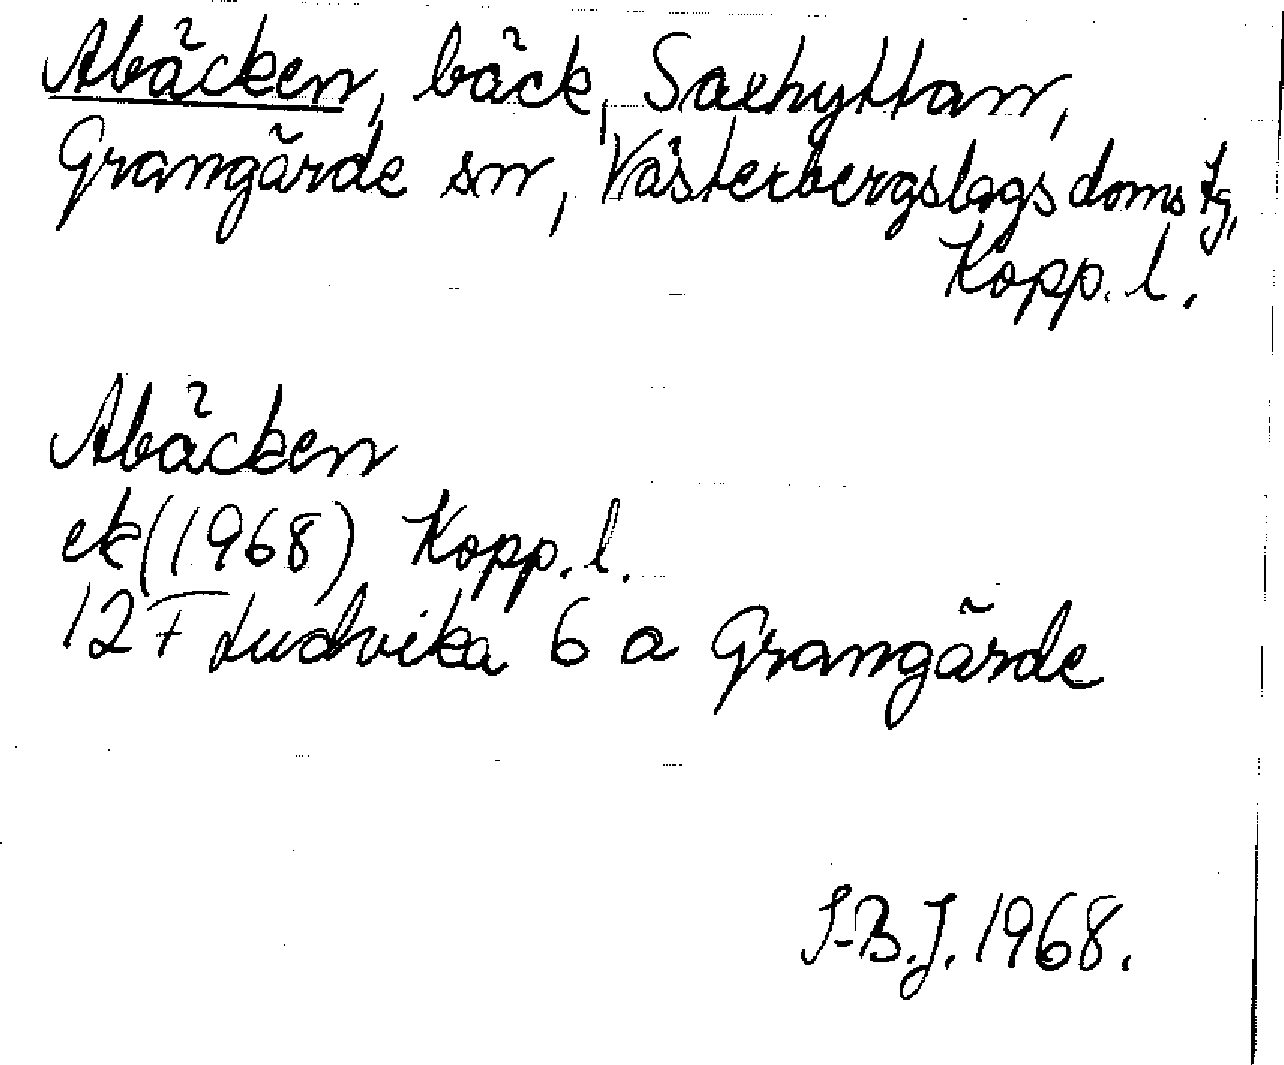 Abäcken, bäck, Saxhyttan,
Grangärde sn, Västerbergslags doms tg,
Kopp. l.
Abäcken
ek (1968) Kopp. l.
12 F Ludvika 6 a Grangärde
S-B.J. 1968.